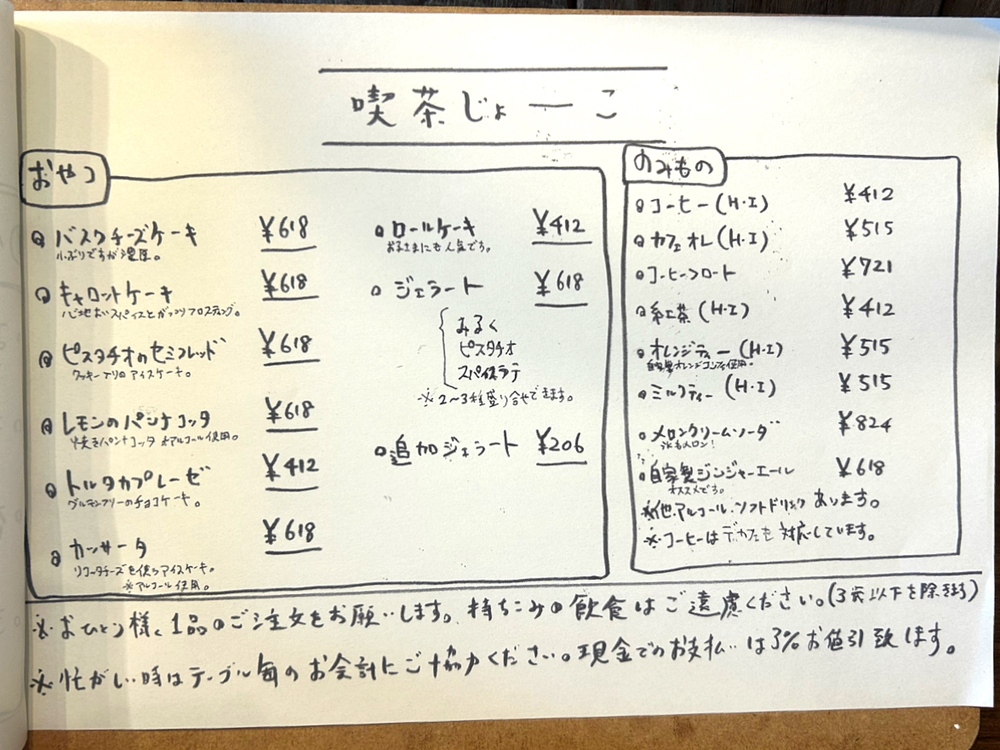 喫茶じょーこ
おやつ
バスクチーズケーキ ¥618
小ぶりですが濃厚。
キャロットケーキ ¥618
心地よいスパイスとがっつりフロスティング。
ピスタチオのセミフレッド ¥618
クッキー入りのアイスケーキ。
レモンのパンナコッタ ¥618
焼きパンナコッタ ※アルコール使用。
トルタカプレーゼ ¥412
グルテンフリーのチョコケーキ。
カッサータ ¥618
リコッタチーズを使うアイスケーキ。
※アルコール使用。
ロールケーキ ¥412
お子さまにも人気です。
ジェラート ¥618
みるく
ピスタチオ
スパイスラテ
※2〜3種盛り合せできます。
追加ジェラート ¥206
のみもの
コーヒー(H・I) ¥412
カフェオレ(H・I) ¥515
コーヒーフロート ¥721
紅茶(H・I) ¥412
オレンジティー(H・I) ¥515
自家製オレンジコンフィ使用。
ミルクティー(H・I) ¥515
メロンクリームソーダ ¥824
氷もメロン!
自家製ジンジャーエール ¥618
オススメです。
※他アルコール・ソフトドリンクあります。
※コーヒーはデカフェも対応しています。
※おひとり様、1品のご注文をお願いします。持ちこみの飲食はご遠慮ください。(3歳以下を除きます)
※忙がしい時はテーブル毎のお会計にご協力ください。現金でのお支払いは3%お値引致します。